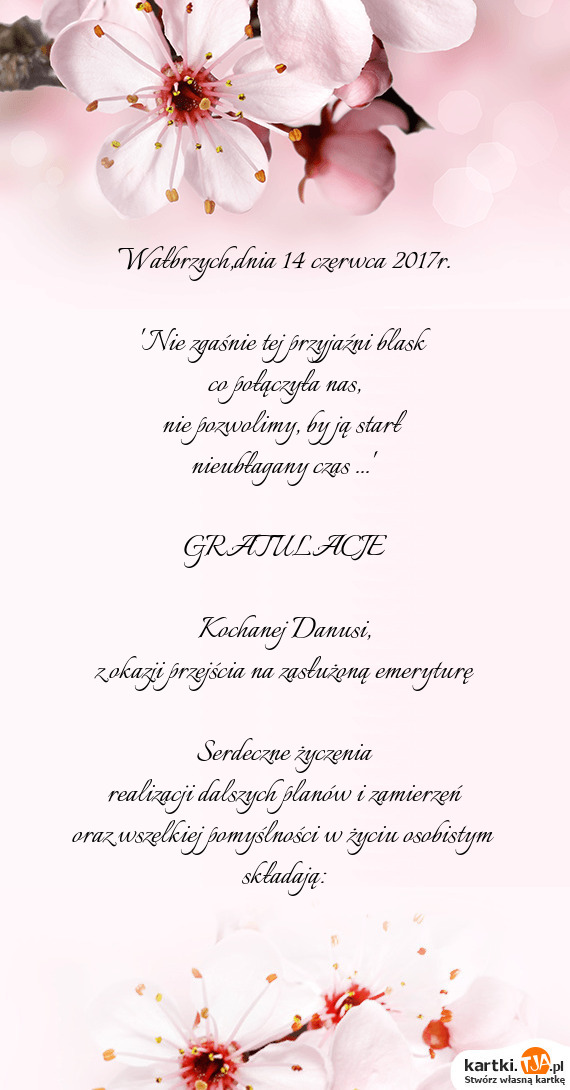 Wałbrzych,dnia 14 czerwca 2017r.
"Nie zgaśnie tej przyjaźni blask
co połączyła nas,
nie pozwolimy, by ją start
nieubłagany czas ..."
GRATULACJE
Kochanej Danusi,
z okazji przejścia na zasłużoną emeryturę
Serdeczne życzenia
realizacji dalszych planów i zamierzeń
oraz wszelkiej pomyślności w życiu osobistym
składają:
kartki.TJA.pl
Stwórz własną kartkę